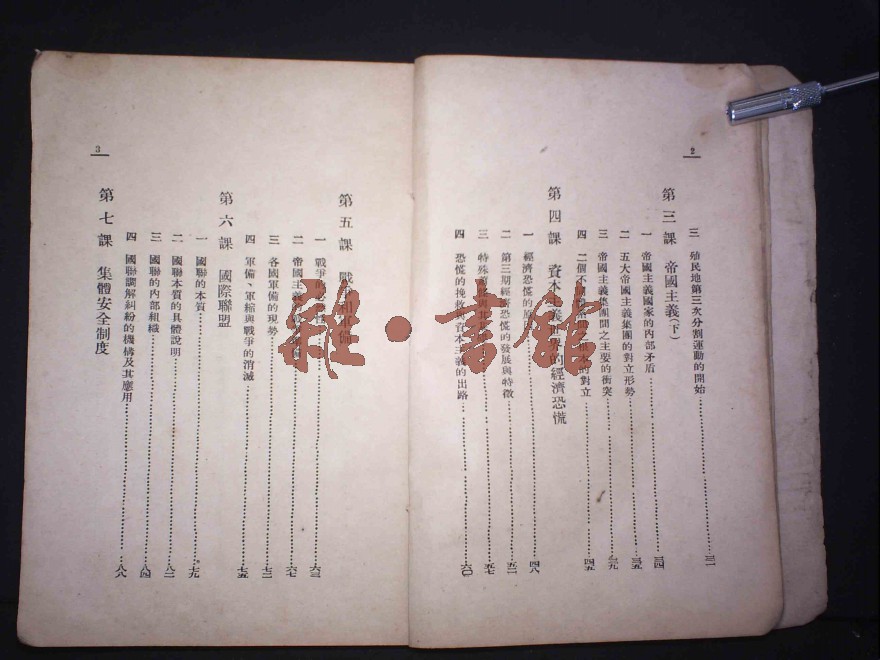 2
三 殖民地第三次分割運動的開始……三一
第三課 帝國主義(下)
一 帝國主義國家的內部矛盾……三四
二 五大帝國主義集團的對立形勢……三五
三 帝國主義集團間之主要的衝突……三九
四 二個不 的對立……四五
第四課 資本主義世界的經濟恐慌
一 經濟恐慌的原……四八
二 第三期經濟恐慌的發展與特徵……五二
三 特殊……五七
四 恐慌的挽救 資本主義的出路……六〇
3
第五課 戰 軍備
一 戰爭的……六三
二 帝國主義……六七
三 各國軍備的現勢……七二
四 軍備、軍縮與戰爭的消滅……七五
第六課 國際聯盟
一 國聯的本質……七九
二 國聯本質的具體說明……八二
三 國聯的內部組織……八四
四 國聯調解糾紛的機構及其應用……八八
第七課 集體安全制度
雜·書館